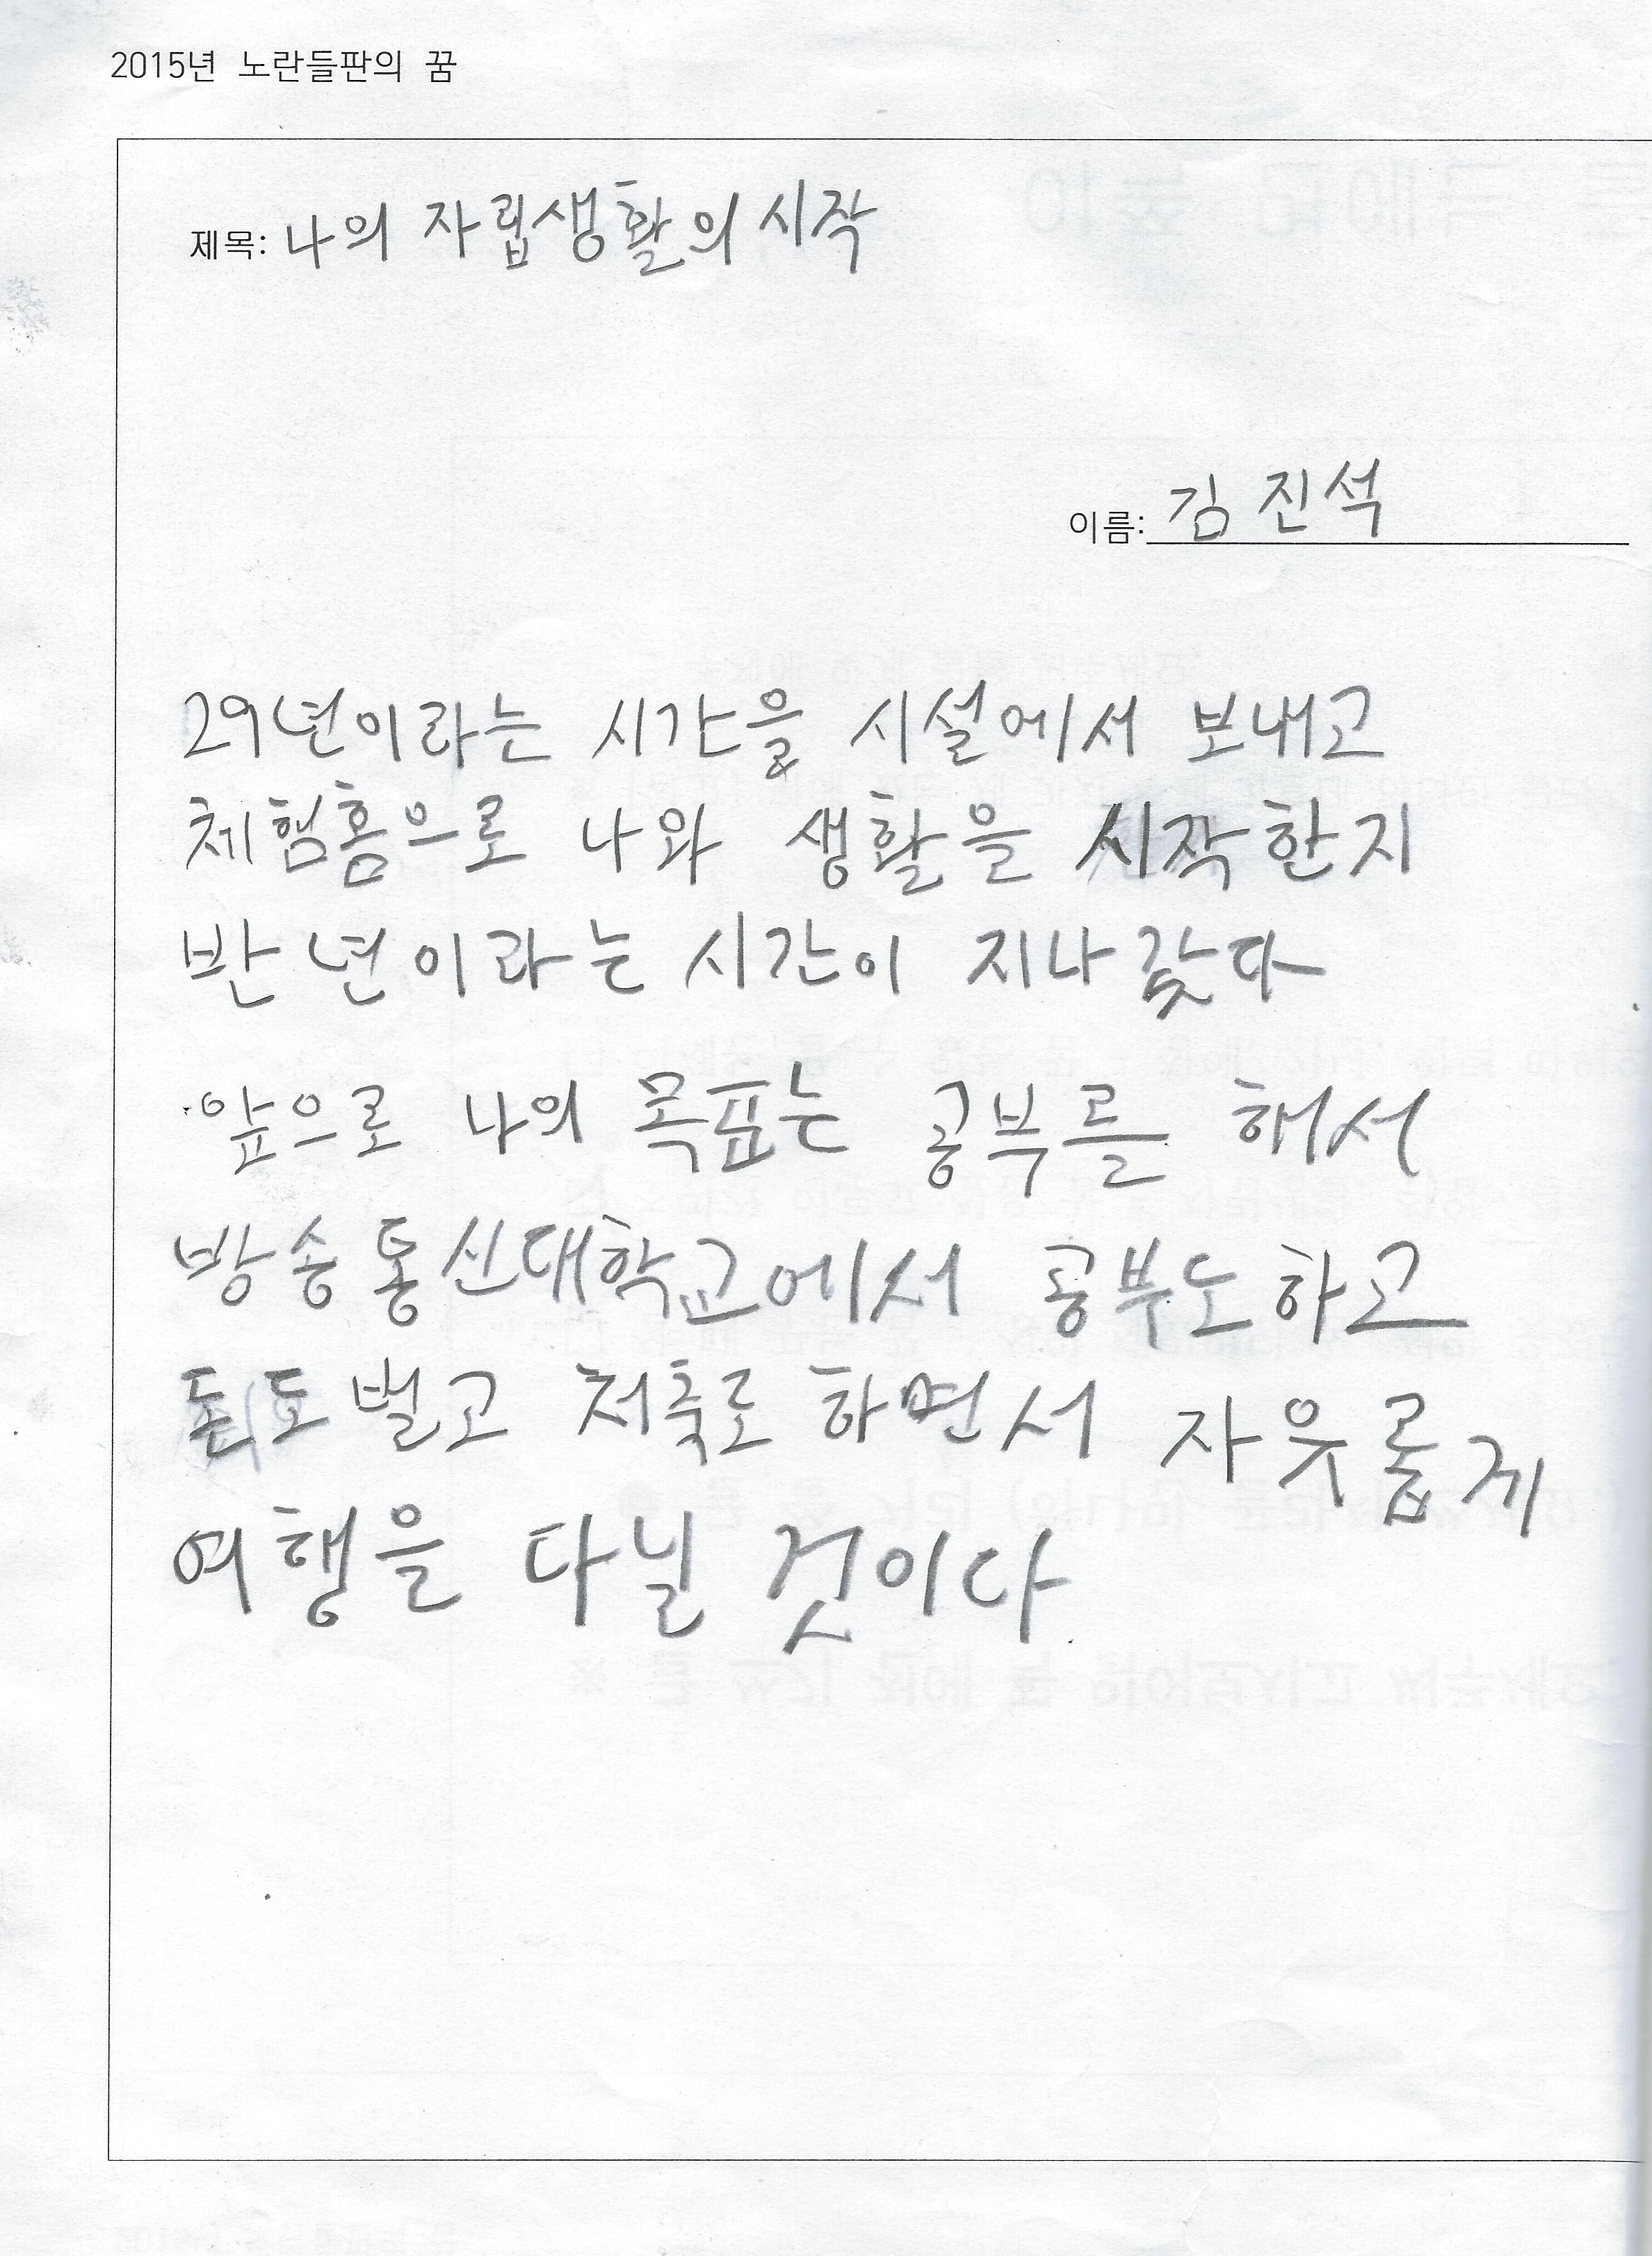 2015년 노란들판의 꿈
제목: 나의 자립생활의 시작
이름: 김진석
29년이라는 시간을 시설에서 보내고
체험홈으로 나와 생활을 시작한지
반년이라는 시간이 지나갔다
앞으로 나의 목표는 공부를 해서
방송통신대학교에서 공부도하고
돈도 벌고 저축도 하면서 자유롭게
여행을 다닐 것이다.